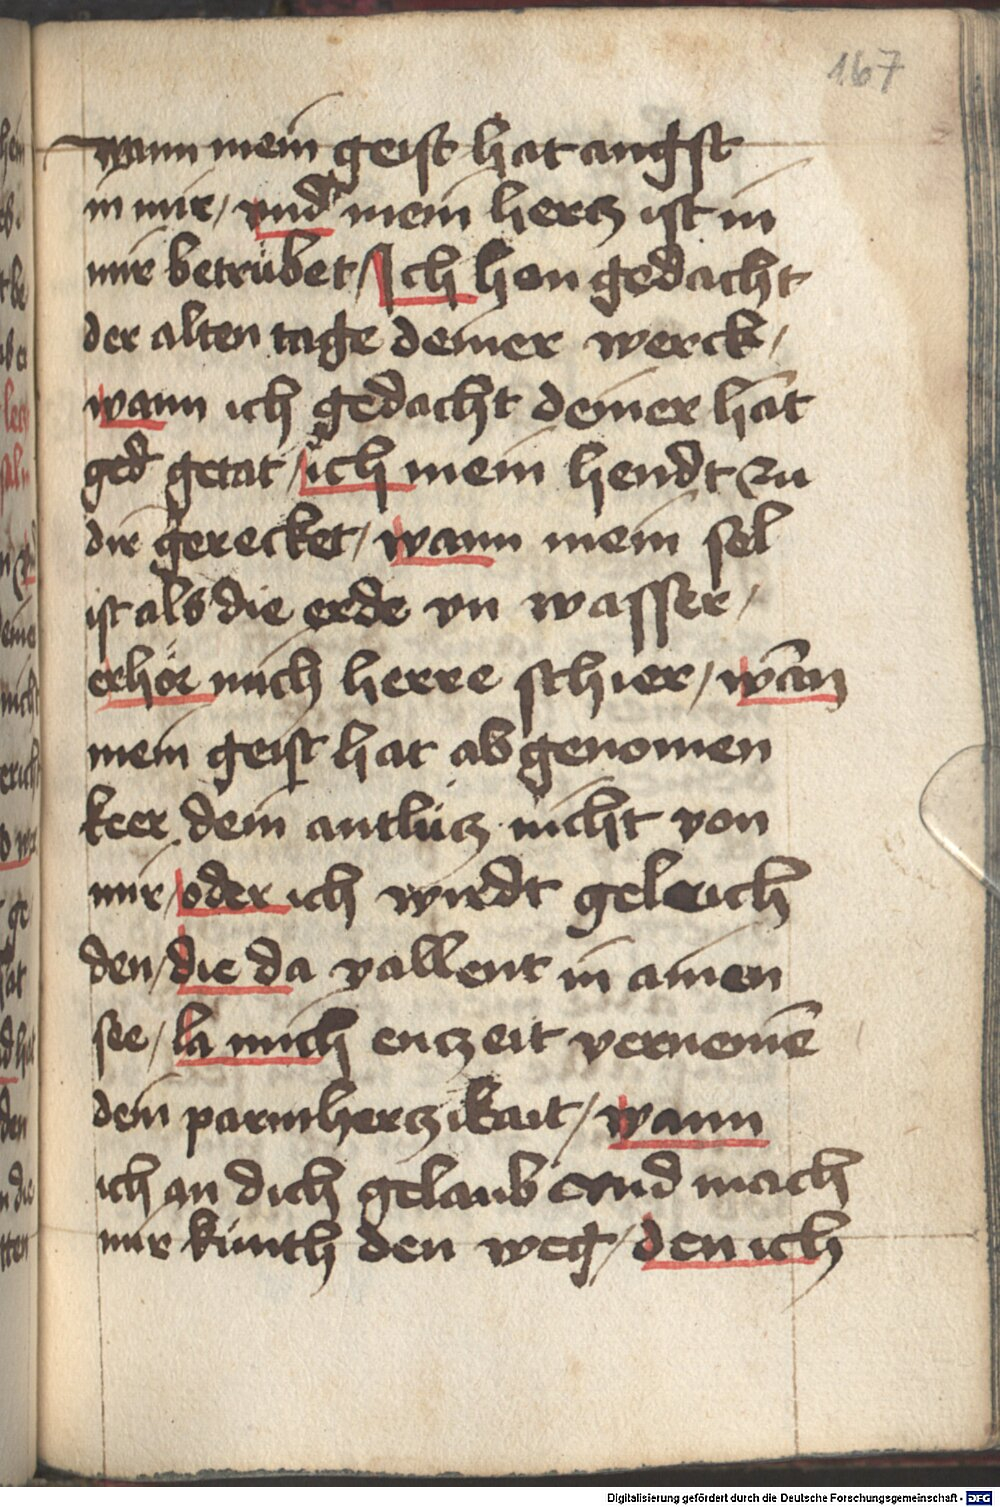 167
wann mein geist hat angst
in mir / vnd mein hertz ist in
mir betrübet / Ich hon gedacht
der alten tage deiner werck /
wann ich gedacht deiner hāt
getat / ich mein hendt zu
dir gerecket / wann mein sel
ist als die erde vn wasser /
erhör mich herre schier / wān
mein geist hat ab genomen
keer dein antlücz nicht von
mir / oder ich wirdt geleich
den / die da vallent in ainen
see / la mich enczeit vernemē
dein parmherczikait / wann
ich an dich gelaub vnd mach
mir künth den weg / den ich
Digitalisierung gefördert durch die Deutsche Forschungsgemeinschaft - DFG